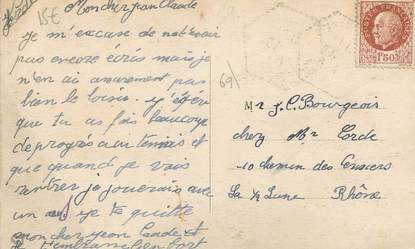 15€
Mon cher Jean Claude
je m'excuse de
pas encore écris mais je
n'en ai pas
bien le loisir. j'espère
que tu as fais beaucoup
de progrès au tennis et
que quand je vais
rentrer je jouerais avec
un je te quitte
mon cher Jean Claude et
t'embrasse bien fort
69
1F50
Mr J.C. Bourgeois
chez Mr Corde
10 chemin des
La ½ Lune Rhône